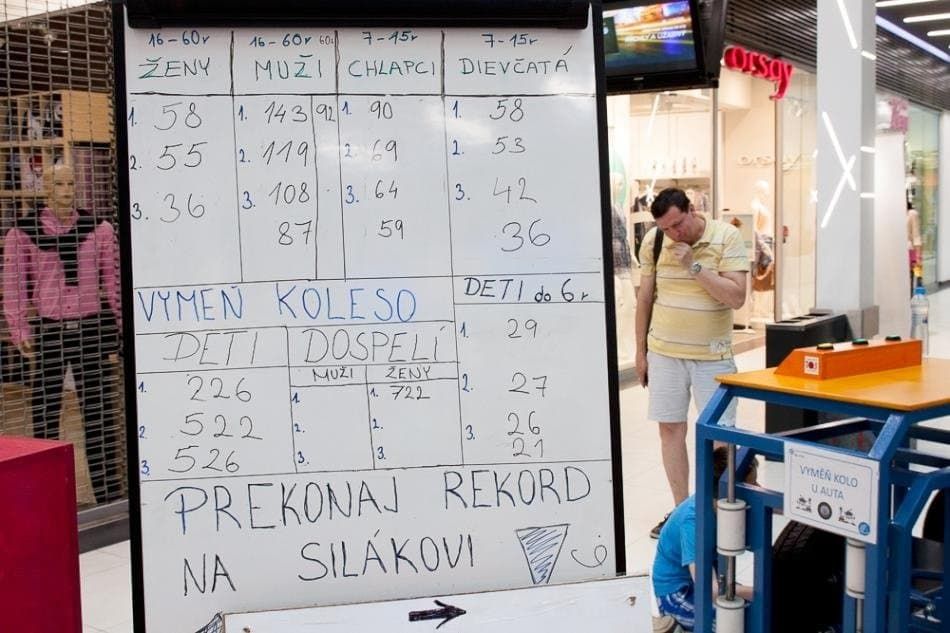 16-60r 16-60r 60r 7-15r 7-15r
ŽENY MUŽI CHLAPCI DIEVČATÁ
1. 58 1. 143 92 1. 90 1. 58
2. 55 2. 119 2. 69 2. 53
3. 36 3. 108 3. 64 3. 42
87 59 36
VYMEŇ KOLESO DETI do 6 r
DETI DOSPELÍ 1. 29
MUŽI ŽENY
1. 226 1. 1. 722 2. 27
2. 522 2. 2. 3. 26
3. 526 3. 3. 21
PREKONAJ REKORD
NA SILÁKOVI
orsay
VYMĚŇ KOLO
U AUTA